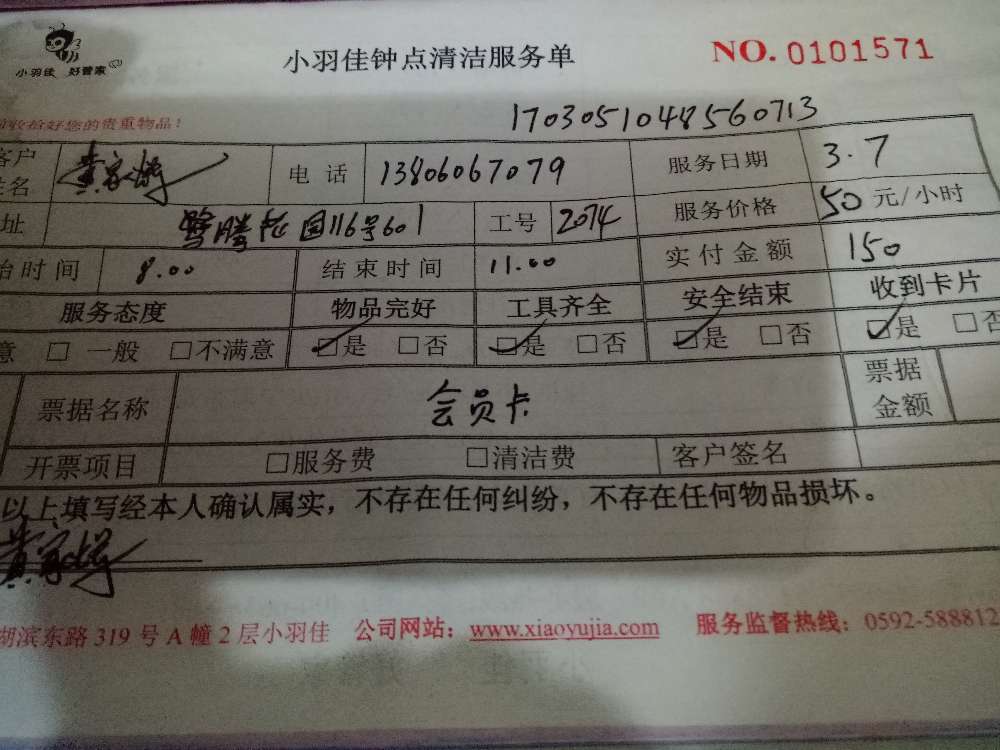 小羽佳 好管家
小羽佳钟点清洁服务单
NO. 0101571
收拾好您的贵重物品!
17030510485560713
客户签名 电话 13806067079 服务日期 3.7
址 鹭腾花园116号601 工号 2074 服务价格 50 元/小时
始时间 8.00 结束时间 11.00 实付金额 150
服务态度 物品完好 工具齐全 安全结束 收到卡片
意 □ 一般 □不满意 ☑是 □否 ☑是 □否 ☑是 □否 ☑是 □否
票据名称 会员卡 票据金额
开票项目 □服务费 □清洁费 客户签名
以上填写经本人确认属实,不存在任何纠纷,不存在任何物品损坏。
湖滨东路 319 号 A 幢 2 层小羽佳 公司网站: www.xiaoyujia.com 服务监督热线: 0592-588812